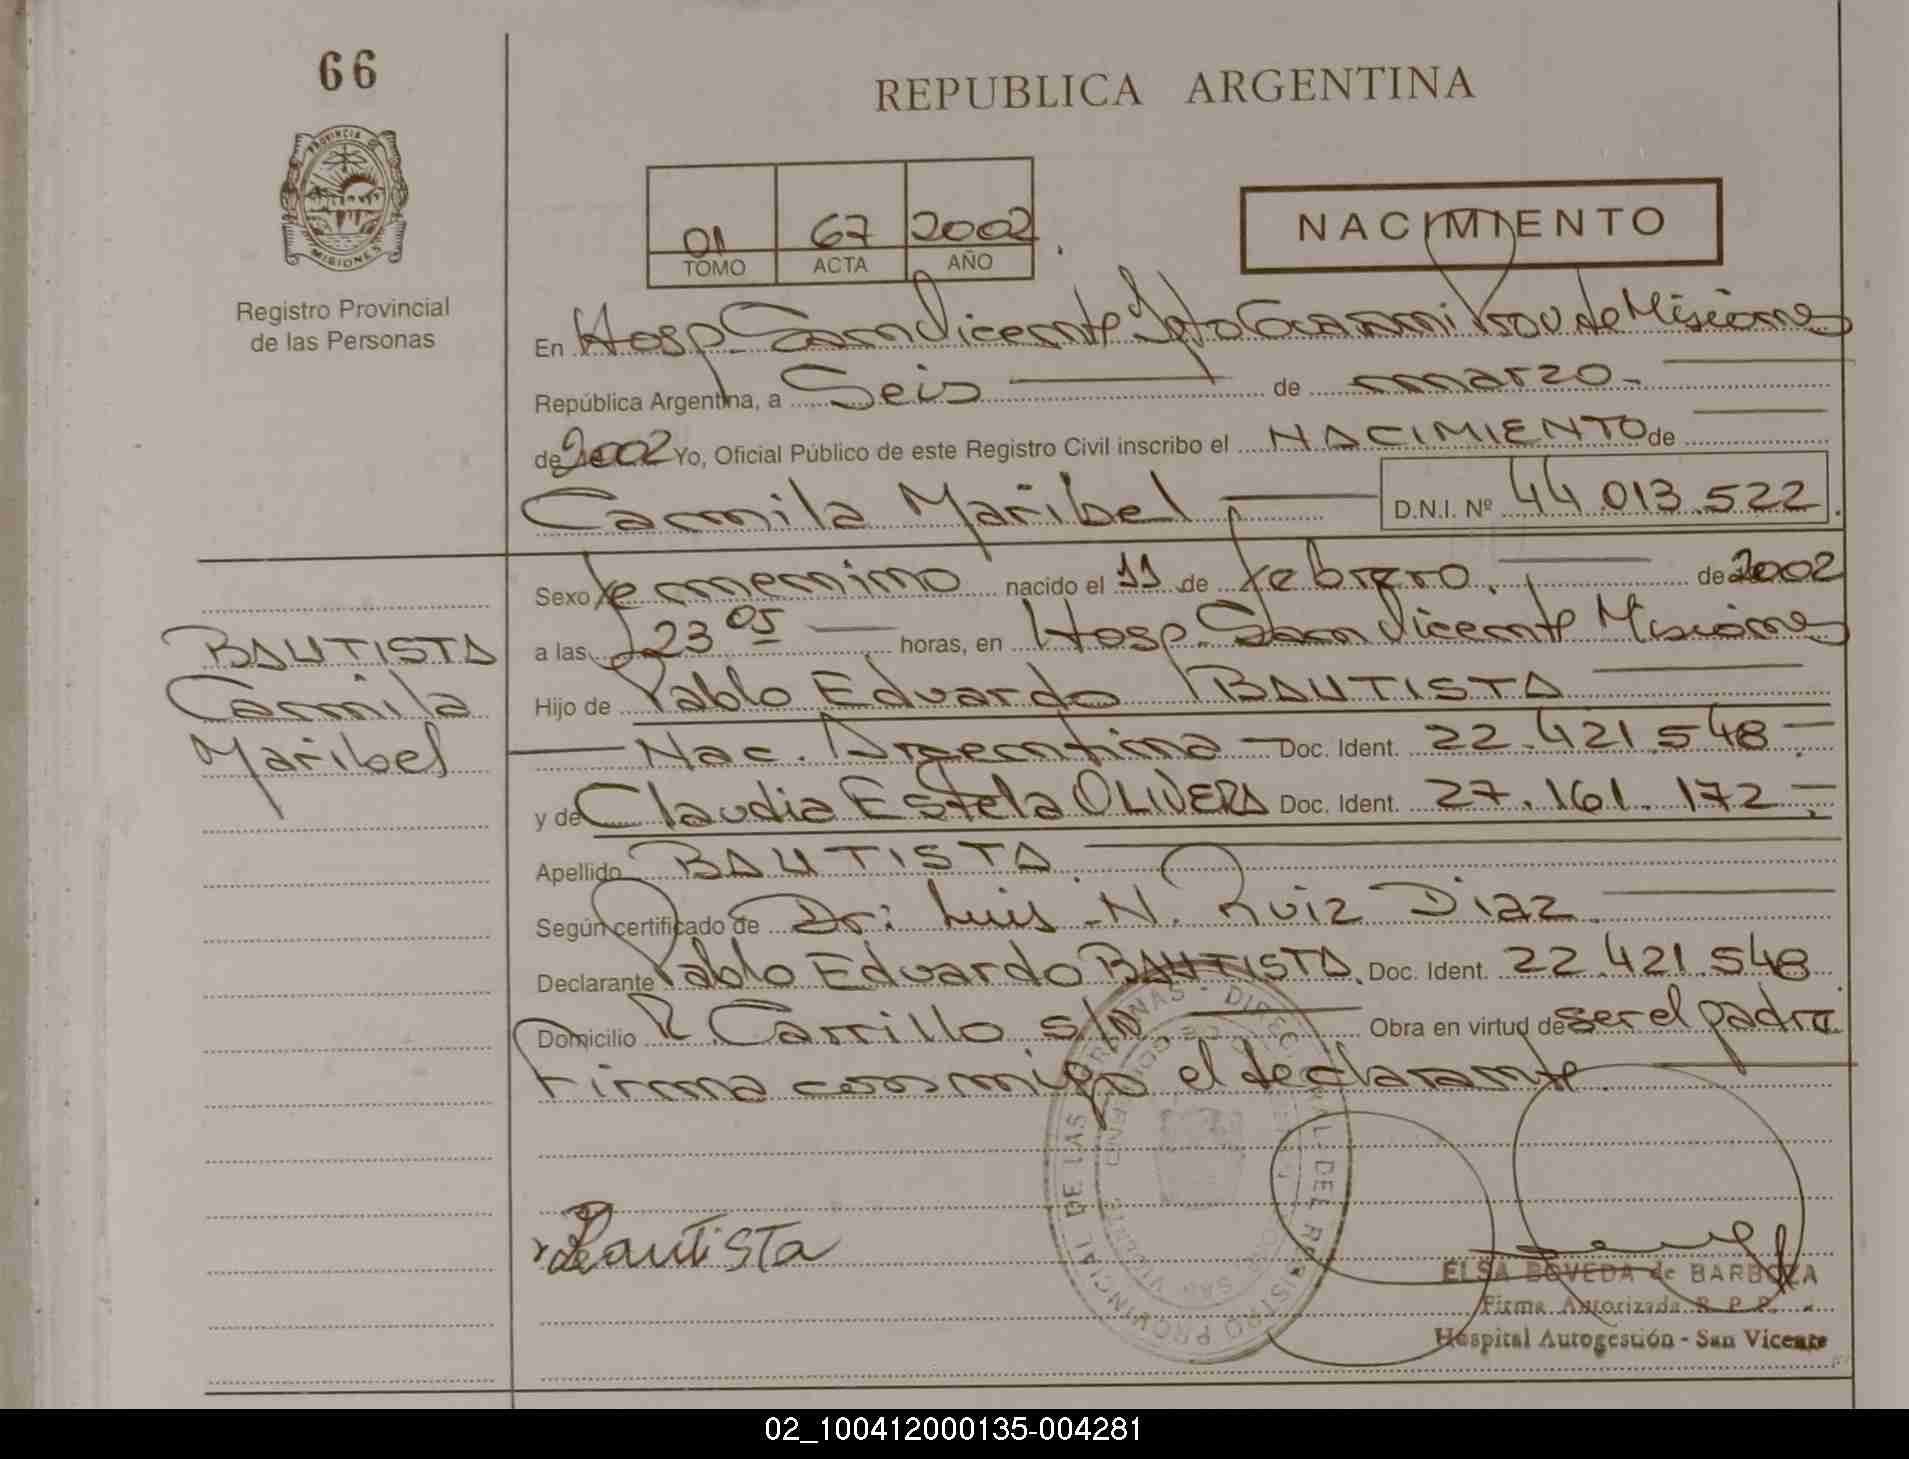 66
REPUBLICA ARGENTINA
PROVINCIA DE
MISIONES
Registro Provincial
de las Personas
01 67 2002
TOMO ACTA AÑO
NACIMIENTO
En Hosp. San Vicente Dpto Guarani Prov de Misiones
República Argentina, a Seis de marzo.
de 2002 Yo, Oficial Público de este Registro Civil inscribo el NACIMIENTO de
Camila Maribel D.N.I. Nº 44.013.522
Sexo femenino nacido el 11 de febrero. de 2002
a las 23 05 horas, en Hosp. San Vicente Misiones
BAUTISTA
Camila
Maribel
Hijo de Pablo Eduardo BAUTISTA
Nac. Argentina - Doc. Ident. 22.421.548.-
y de Claudia Estela OLIVERA Doc. Ident. 27.161.172.-
Apellido BAUTISTA
Según certificado de Dr: Luis N. Ruiz Diaz.
Declarante Pablo Eduardo BAUTISTA. Doc. Ident. 22.421.548
Domicilio R Carrillo s/n Obra en virtud de ser el padre
Firma conmigo el declarante.
Bautista
PROVINCIAL DE LAS PERSONAS - DIRECC DEL REGISTRO
ELSA BOVEDA de BARBOZA
Firma Autorizada R. P. P.
Hospital Autogestión - San Vicente
02_100412000135-004281